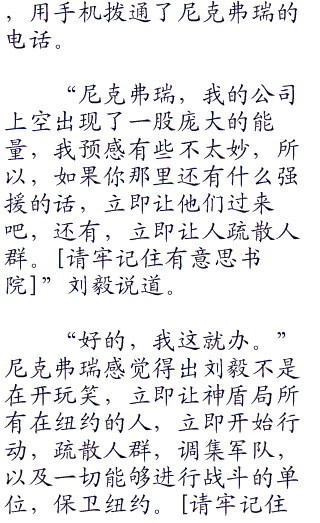 ，用手机拨通了尼克弗瑞的
电话。
“尼克弗瑞，我的公司
上空出现了一股庞大的能
量，我预感有些不太妙，所
以，如果你那里还有什么强
援的话，立即让他们过来
吧，还有，立即让人疏散人
群。[请牢记住有意思书
院]”刘毅说道。
“好的，我这就办。”
尼克弗瑞感觉得出刘毅不是
在开玩笑，立即让神盾局所
有在纽约的人，立即开始行
动，疏散人群，调集军队，
以及一切能够进行战斗的单
位，保卫纽约。[请牢记住